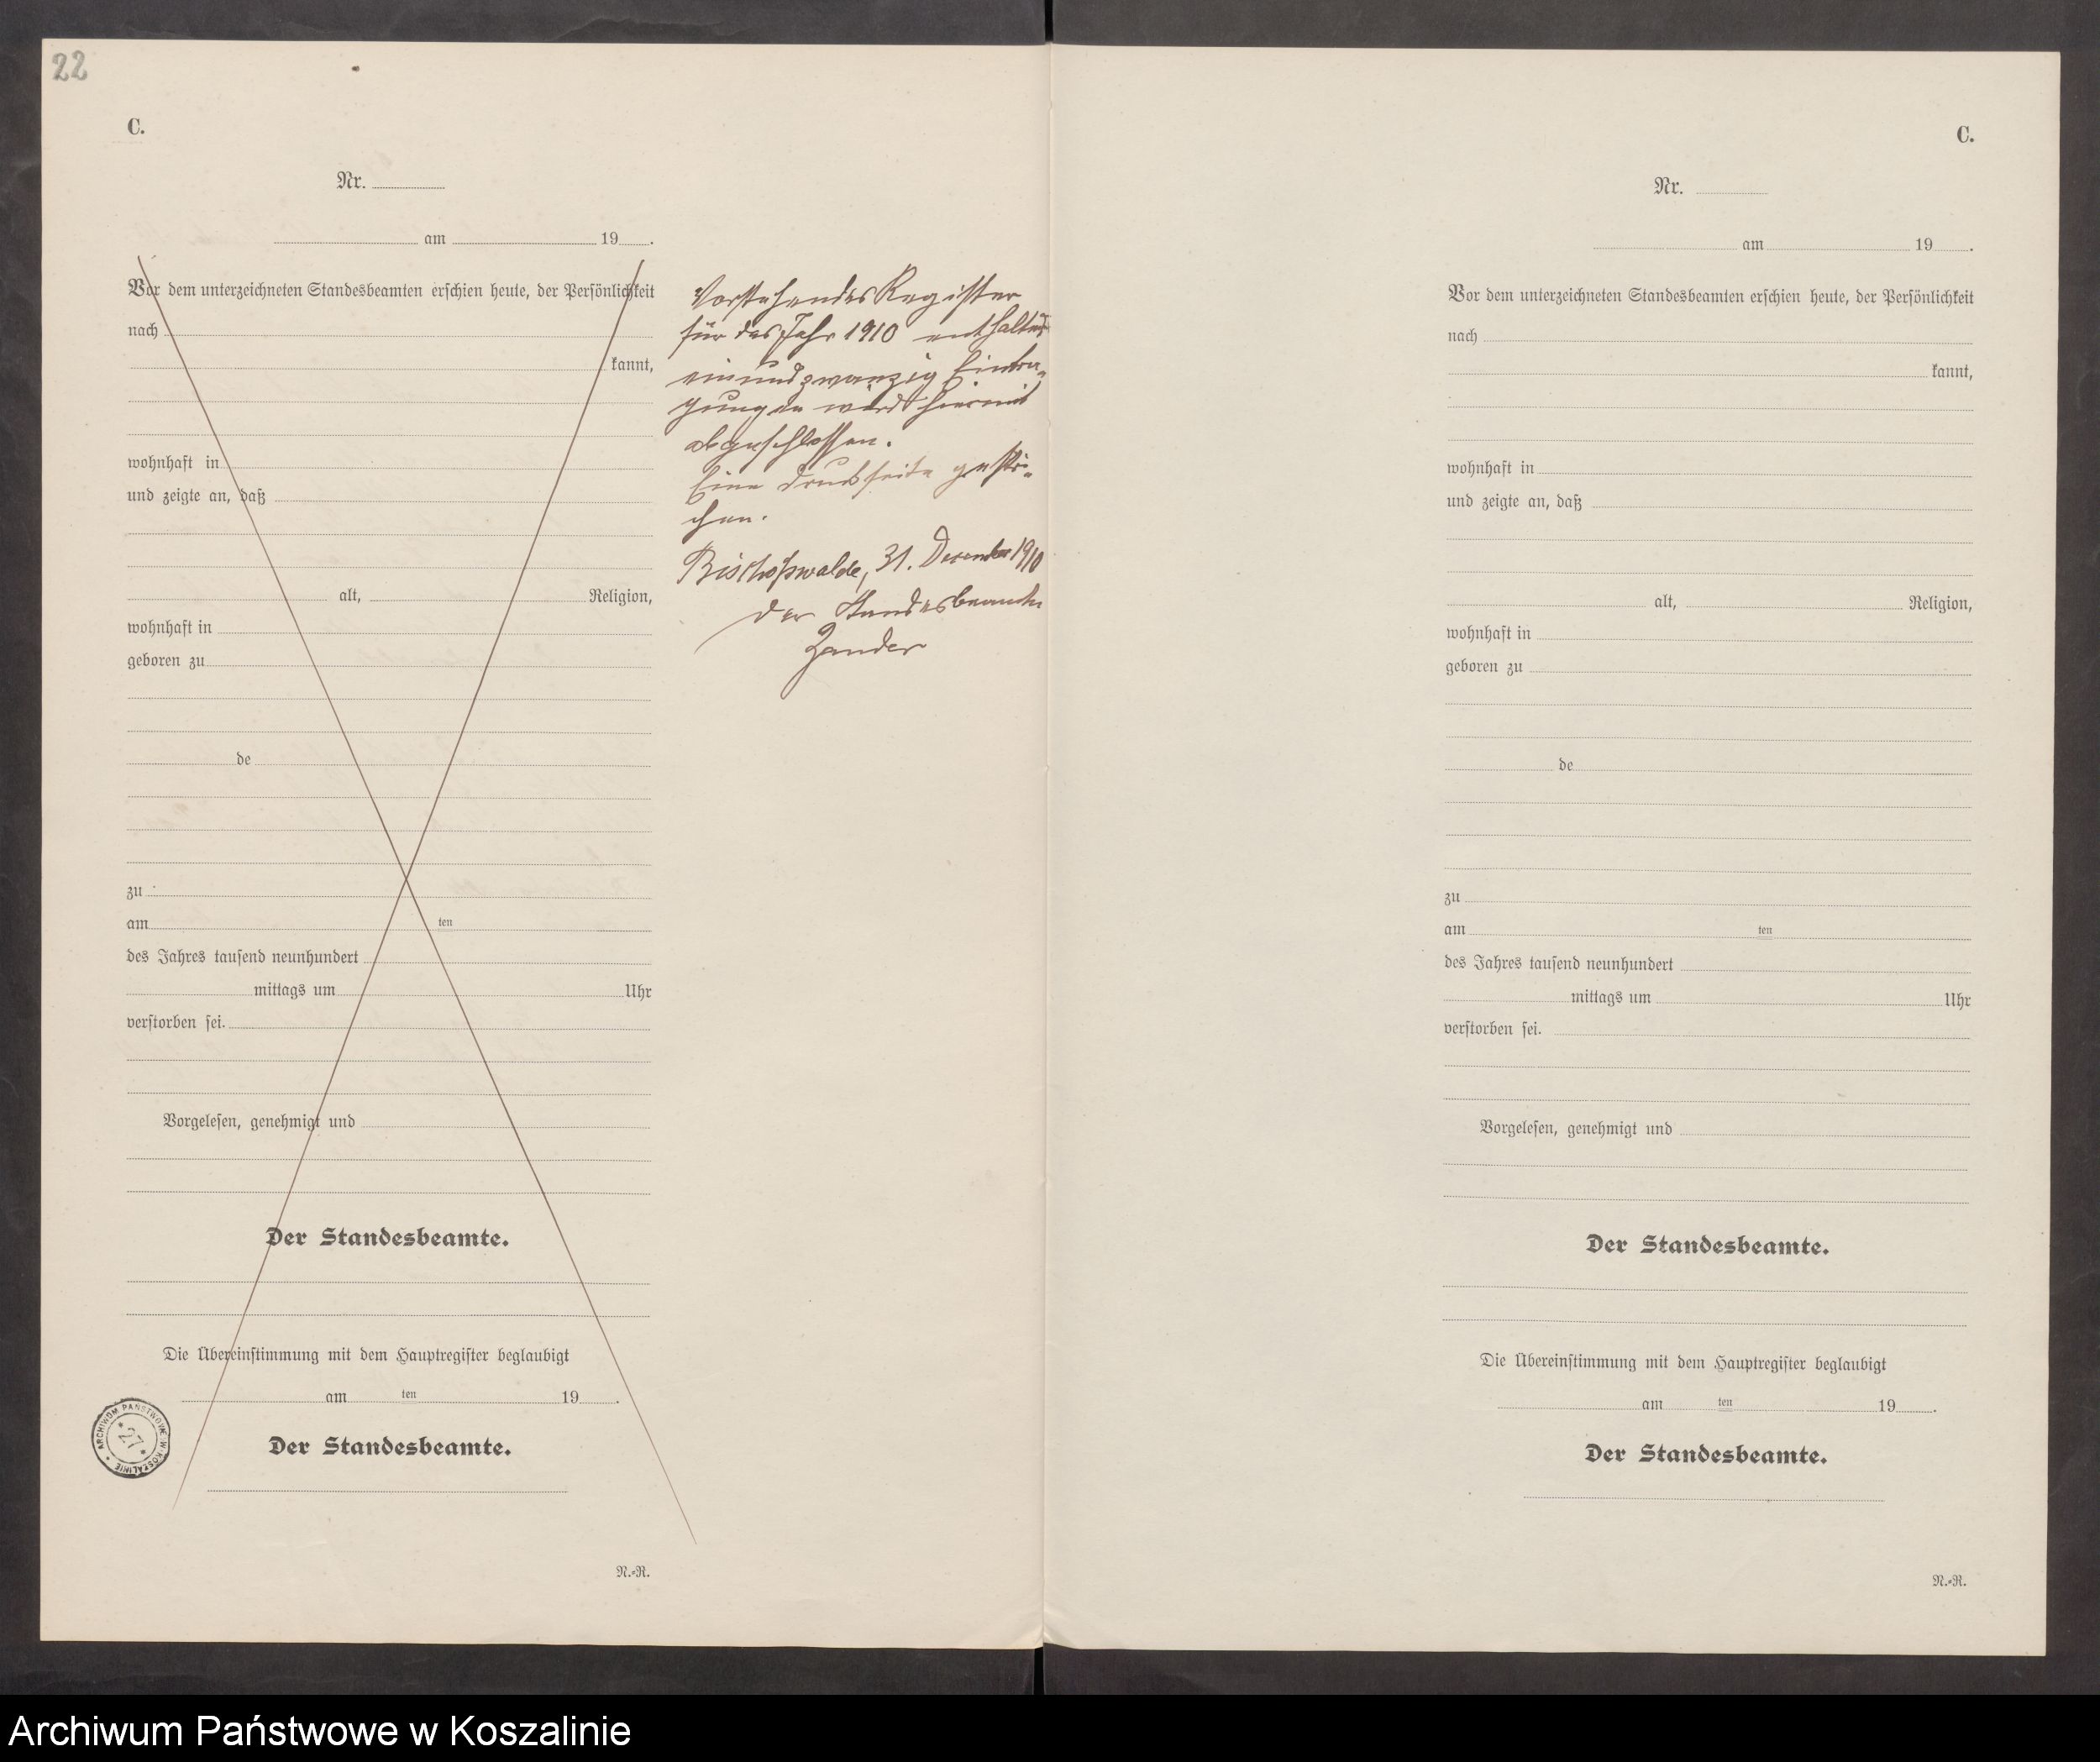 22
C.
Nr.
am 19 .
Vor dem unterzeichneten Standesbeamten erschien heute, der Persönlichkeit
nach
kannt,
wohnhaft in
und zeigte an, daß
alt, Religion,
wohnhaft in
geboren zu
de
zu
am ten
des Jahres tausend neunhundert
mittags um Uhr
verstorben sei.
Vorgelesen, genehmigt und
Der Standesbeamte.
Die Übereinstimmung mit dem Hauptregister beglaubigt
am ten 19 .
Der Standesbeamte.
N.-R.
ARCHIWUM PAŃSTWOWE W KOSZALINIE
* 27 *
Vorstehendes Register
für das Jahr 1910 enthaltend
einundzwanzig Eintra-
gungen wird hiermit
abgeschlossen.
Eine Druckseite gestri-
chen.
Bischofswalde, 31. December 1910
Der Standesbeamte
Zander
C.
Nr.
am 19 .
Vor dem unterzeichneten Standesbeamten erschien heute, der Persönlichkeit
nach
kannt,
wohnhaft in
und zeigte an, daß
alt, Religion,
wohnhaft in
geboren zu
de
zu
am ten
des Jahres tausend neunhundert
mittags um Uhr
verstorben sei.
Vorgelesen, genehmigt und
Der Standesbeamte.
Die Übereinstimmung mit dem Hauptregister beglaubigt
am ten 19 .
Der Standesbeamte.
N.-R.
Archiwum Państwowe w Koszalinie